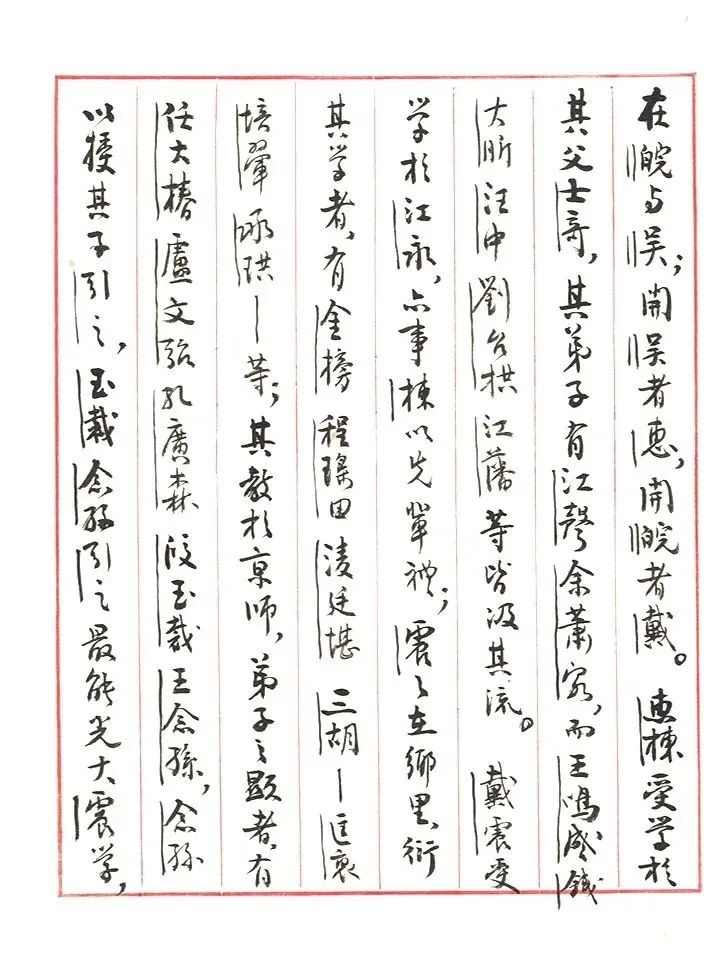 在皖与吴；開吴者惠，開皖者戴。惠棟受学於
其父士奇，其弟子有江聲余蕭客，而王鸣盛錢
大昕汪中劉台拱江藩等皆汲其流。戴震受
学於江永，亦事棟以先輩禮；震之在鄉里，衍
其学者，有金榜程瑤田淩廷堪三胡—匡衷
培翬承珙—等；其教於京师，弟子之顯者，有
任大椿盧文弨孔廣森段玉裁王念孫，念孫
以授其子引之，玉裁念孫引之最能光大震学，